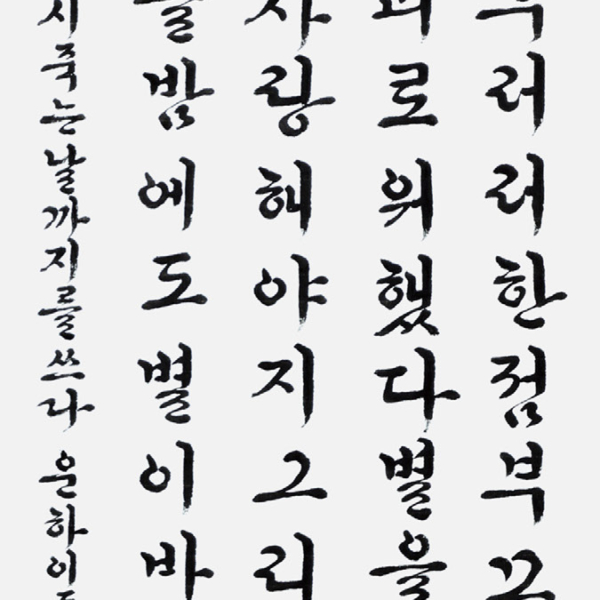 우러러한점부끄
괴로워했다별을
사랑해야지그리
늘밤에도별이바
시죽는날까지를쓰다 운하이